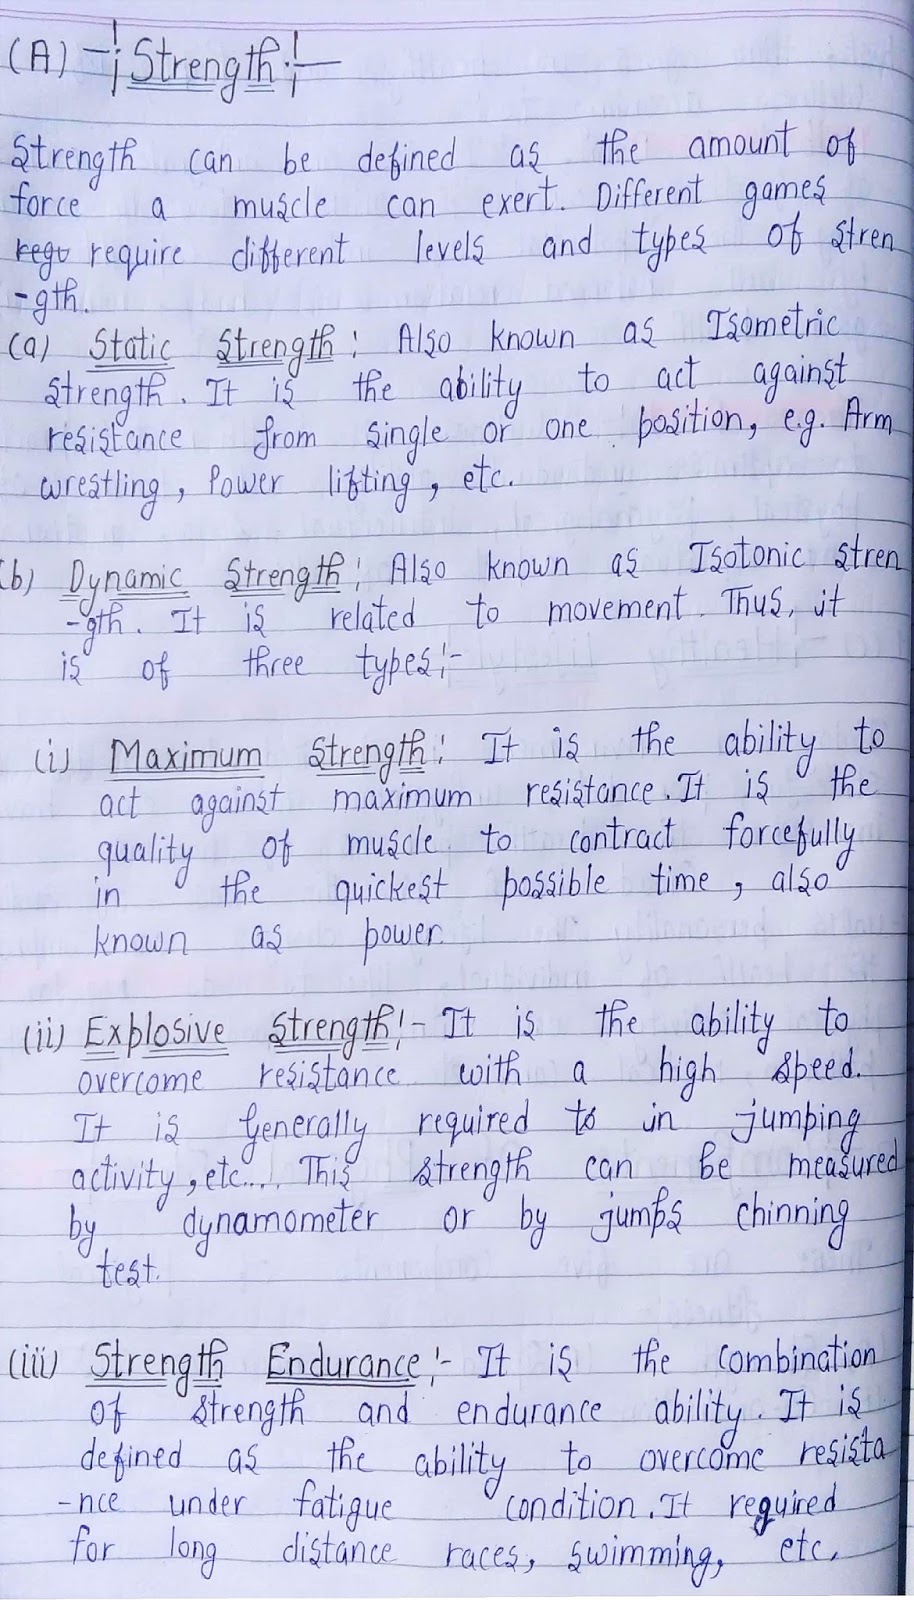 (A) -¦ Strength :¦-
Strength can be defined as the amount of
force a muscle can exert. Different games
require different levels and types of stren
-gth.
(a) Static Strength : Also known as Isometric
strength. It is the ability to act against
resistance from single or one position, e.g. Arm
wrestling, Power lifting, etc.
(b) Dynamic Strength : Also known as Isotonic stren
-gth. It is related to movement. Thus, it
is of three types:-
(i) Maximum Strength: It is the ability to
act against maximum resistance. It is the
quality of muscle to contract forcefully
in the quickest possible time, also
known as power.
(ii) Explosive Strength:- It is the ability to
overcome resistance with a high speed.
It is Generally required to in jumping
activity, etc.... This strength can be measured
by dynamometer or by jumps chinning
test.
(iii) Strength Endurance:- It is the combination
of strength and endurance ability. It is
defined as the ability to overcome resista
-nce under fatigue condition. It required
for long distance races, swimming, etc.